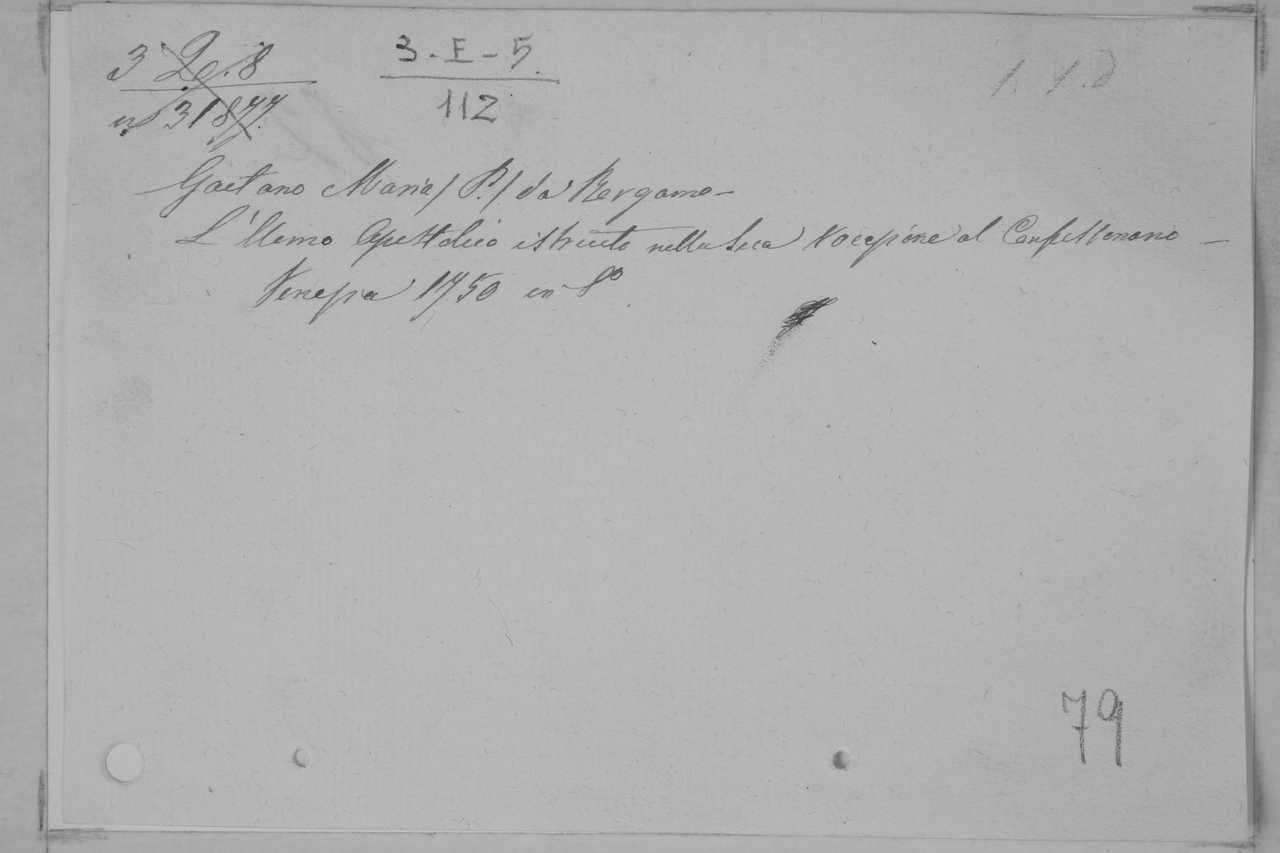 3 2e. 8
n 31877.
3-E-5.
112
Gaetano Maria / P. / da Bergamo -
L'Uomo Apostolico istruito nella sua vocazione al Confessionario -
Venezia 1750 in 8º
79